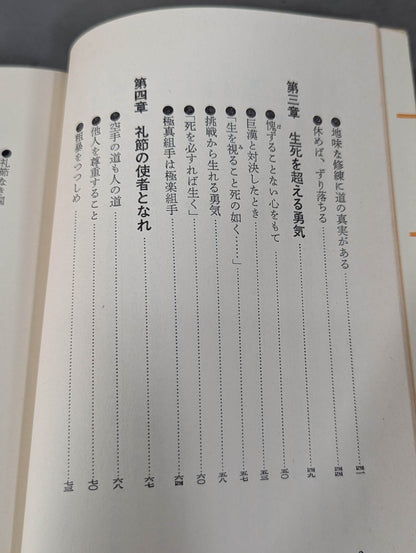 ●地味な修練に道の真実がある……四一
●休めば、ずり落ちる……四四
第三章　生死を超える勇気……四九
●愧ずることない心をもて……五〇
●巨漢と対決したとき……五三
●「生を視ること死の如く……」……五七
●挑戦から生れる勇気……五八
●「死を必すれば生く」……六〇
●極真組手は極楽組手……六四
第四章　礼節の使者となれ……六七
●空手の道も人の道……六八
●他人を尊重すること……七〇
●粗暴をつつしめ……七三
●礼節なき